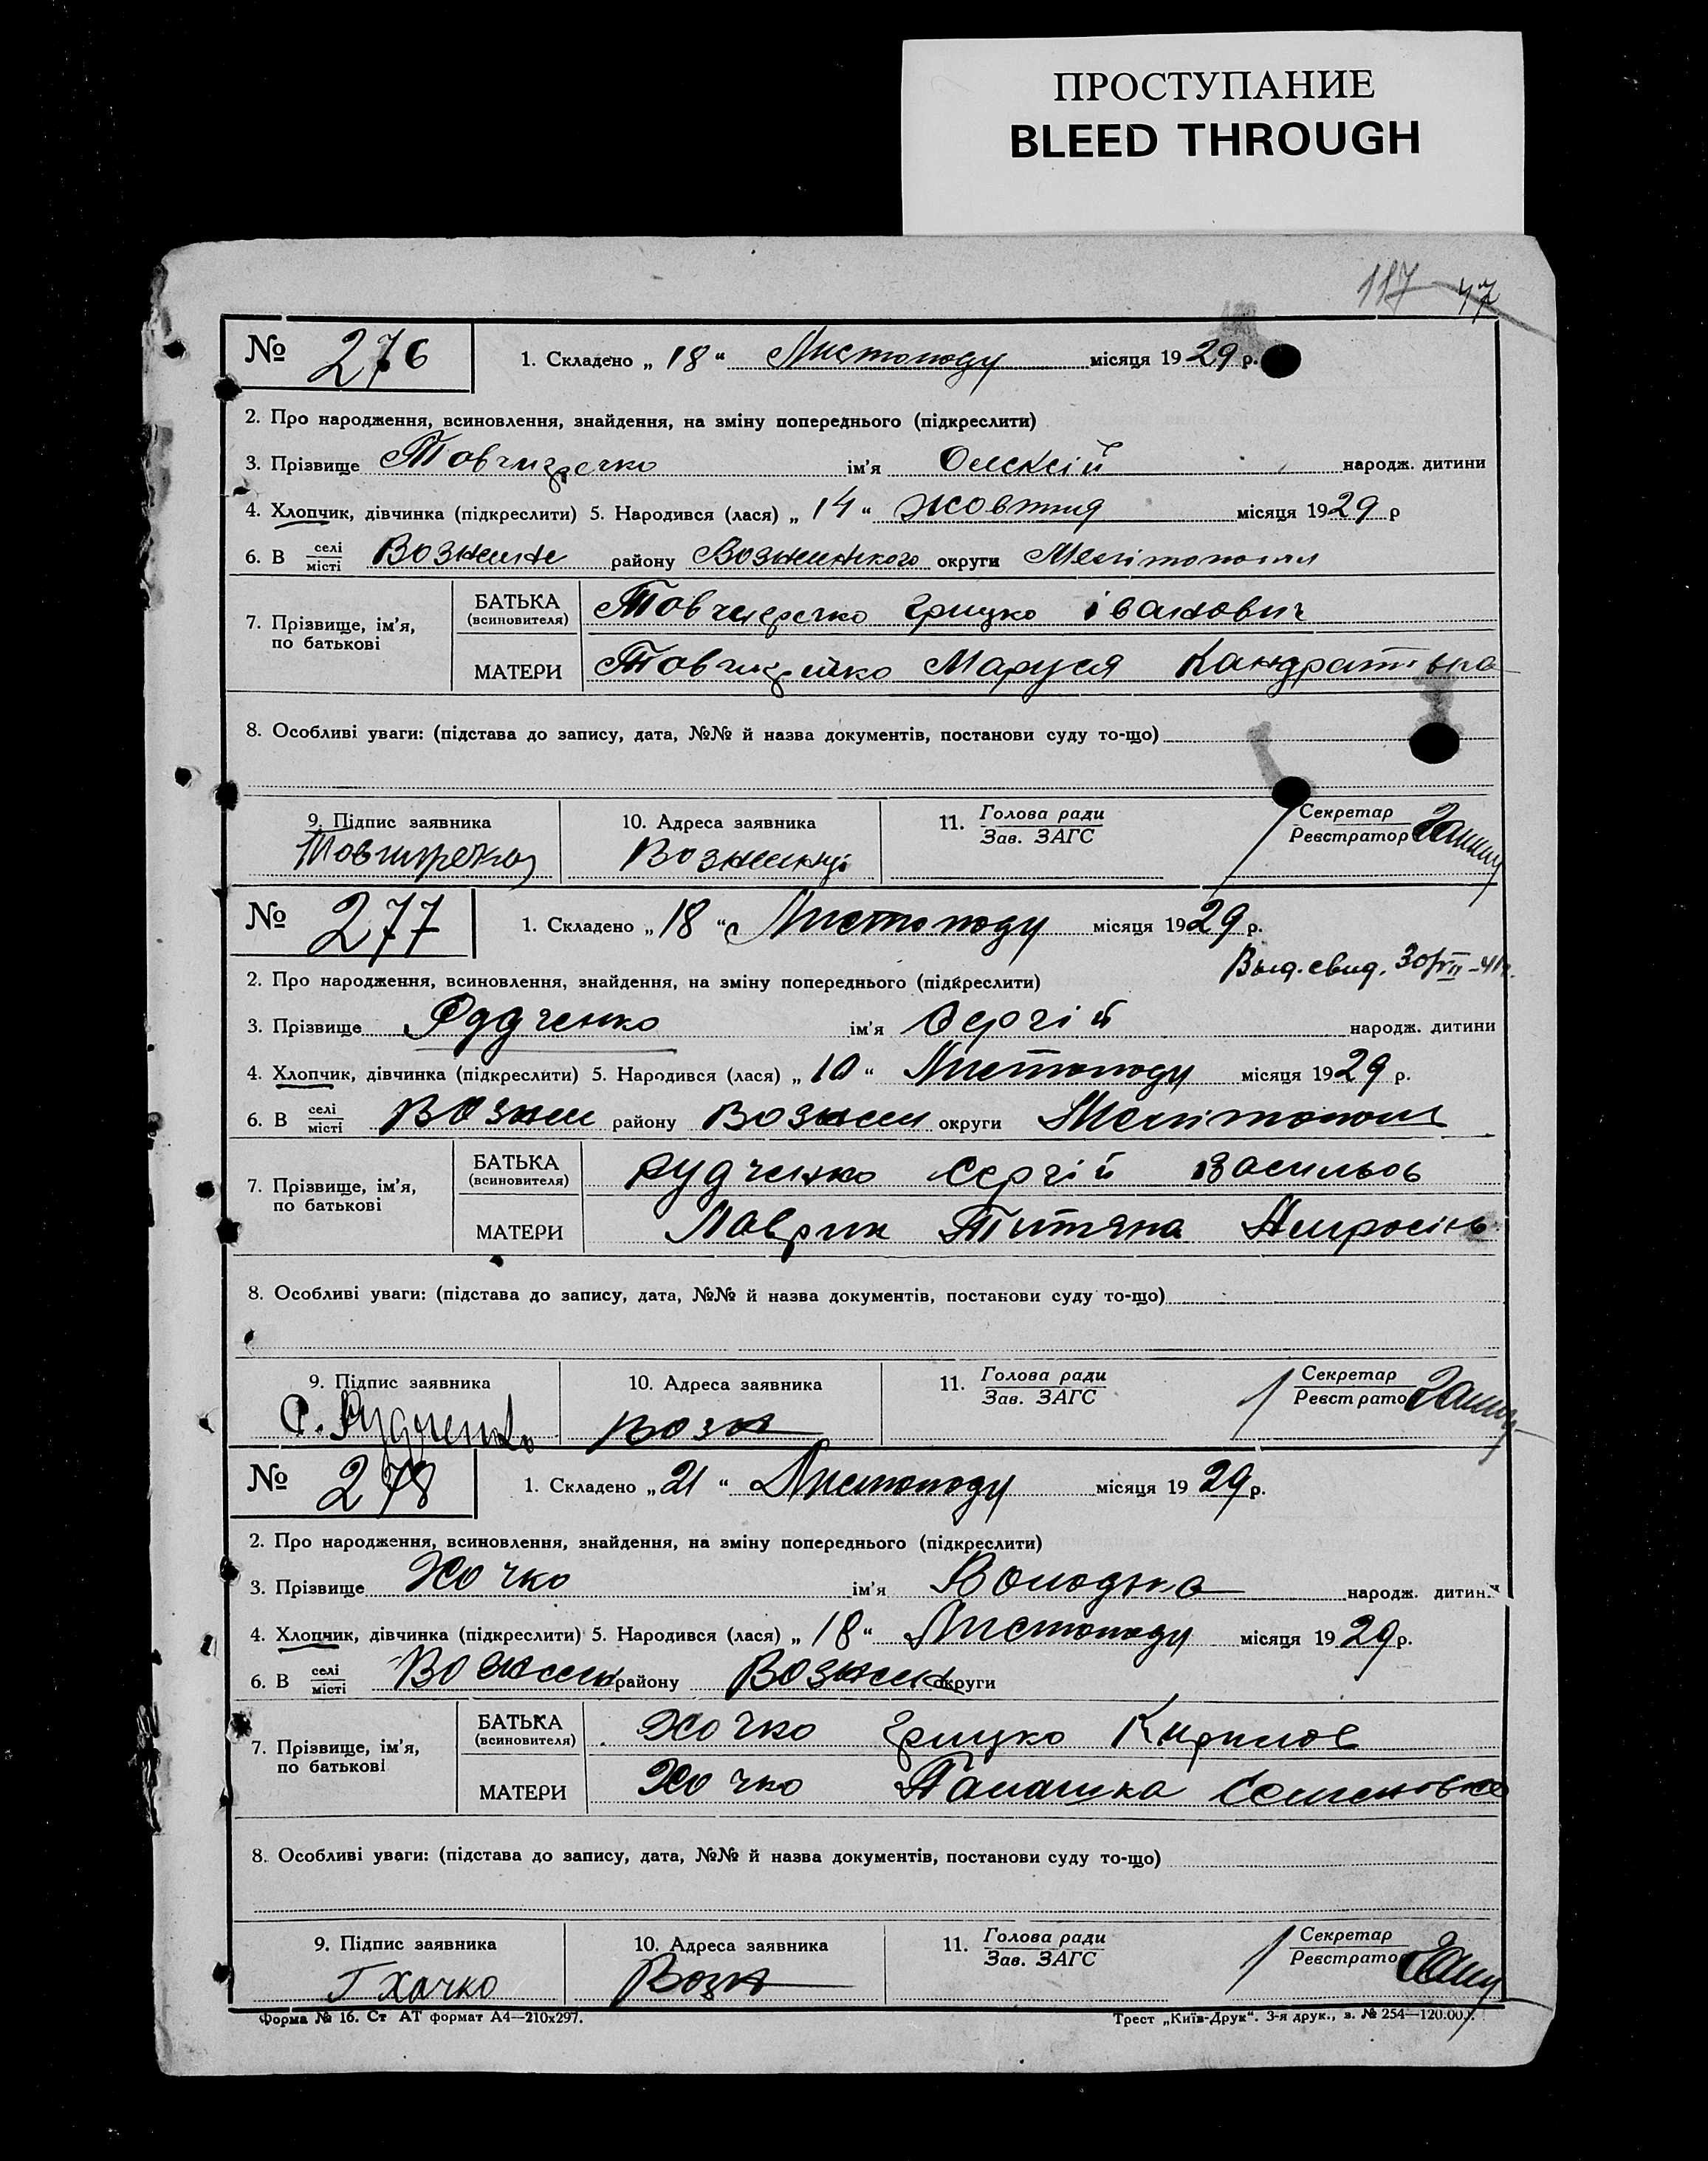 ПРОСТУПАНИЕ
BLEED THROUGH
117 47
№ 276 1. Складено „ 18 “ Листопаду місяця 1929 р.
2. Про народження, всиновлення, знайдення, на зміну попереднього (підкреслити)
3. Прізвище ім'я Олексій народж. дитини
4. Хлопчик, дівчинка (підкреслити) 5. Народився (лася) „ 14 “ жовтня місяця 1929 р
6. В селі місті району округи
7. Прізвище, ім'я, по батькові
БАТЬКА (всиновителя) Грицко Іванович
МАТЕРИ Маруся
8. Особливі уваги: (підстава до запису, дата, №№ й назва документів, постанови суду то-що)
9. Підпис заявника 10. Адреса заявника 11. Голова ради Зав. ЗАГС Секретар Реєстратор
№ 277 1. Складено „ 18 “ Листопаду місяця 1929 р.
Выд. свид.
2. Про народження, всиновлення, знайдення, на зміну попереднього (підкреслити)
3. Прізвище Рудченко ім'я Сергій народж. дитини
4. Хлопчик, дівчинка (підкреслити) 5. Народився (лася) „ 10 “ Листопаду місяця 1929 р.
6. В селі місті Возне району Возне округи Мелітополь
7. Прізвище, ім'я, по батькові
БАТЬКА (всиновителя) Рудченко Сергій Васильов
МАТЕРИ Лаврик
8. Особливі уваги: (підстава до запису, дата, №№ й назва документів, постанови суду то-що)
9. Підпис заявника 10. Адреса заявника 11. Голова ради Зав. ЗАГС Секретар Реєстратор
С. Рудченко Возн
№ 278 1. Складено „ 21 “ Листопаду місяця 1929 р.
2. Про народження, всиновлення, знайдення, на зміну попереднього (підкреслити)
3. Прізвище Хочко ім'я Володька народж. дитини
4. Хлопчик, дівчинка (підкреслити) 5. Народився (лася) „ 18 “ Листопаду місяця 1929 р.
6. В селі місті району округи
7. Прізвище, ім'я, по батькові
БАТЬКА (всиновителя) Хочко Грицко Кирилов
МАТЕРИ Хочко Палашка Семеновна
8. Особливі уваги: (підстава до запису, дата, №№ й назва документів, постанови суду то-що)
9. Підпис заявника 10. Адреса заявника 11. Голова ради Зав. ЗАГС Секретар Реєстратор
Г Хачко Возн
Форма № 16. Ст АТ формат А4—210х297. Трест „Київ-Друк“. 3-я друк., з. № 254—120.000.